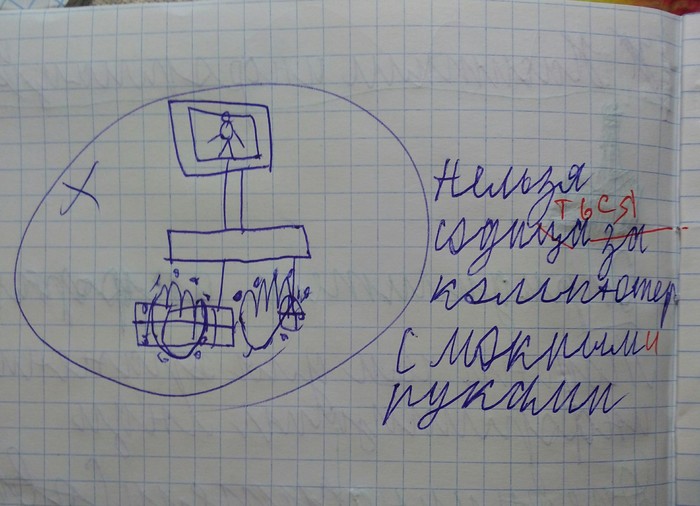 Нельзя
ться
содица за
компютер
с мокрыми
руками